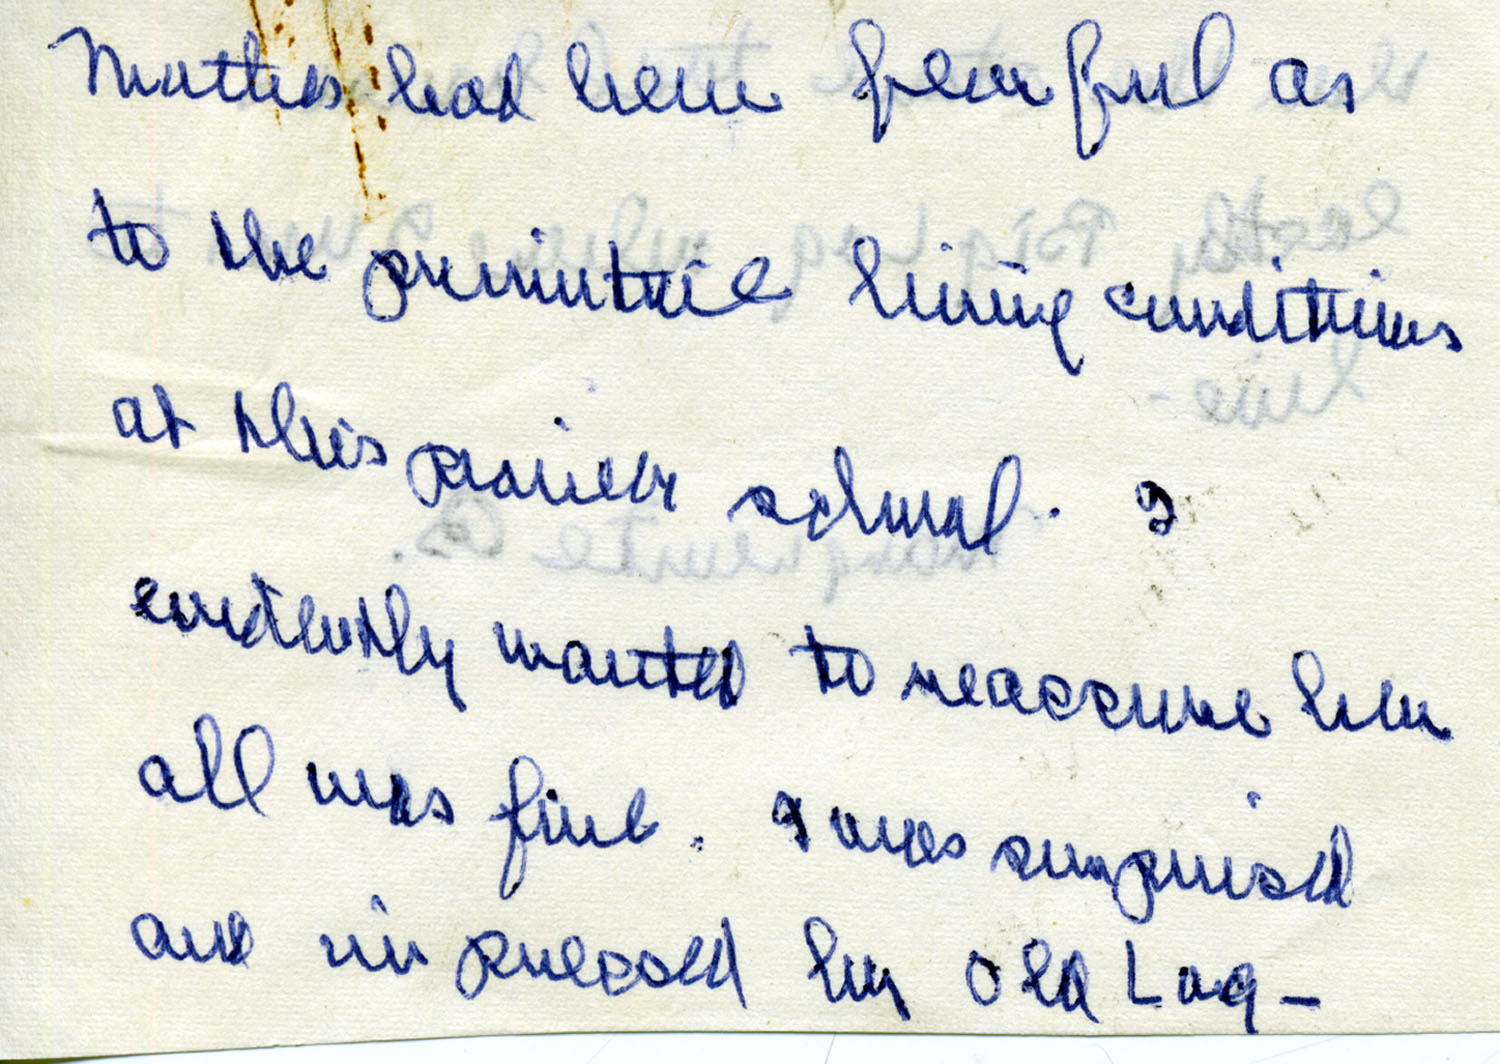 Mother had been fearful as
to the primitive living conditions
at this pioneer school. I
evidently wanted to reassure her
all was fine. I was surprised
and impressed by Old Log–